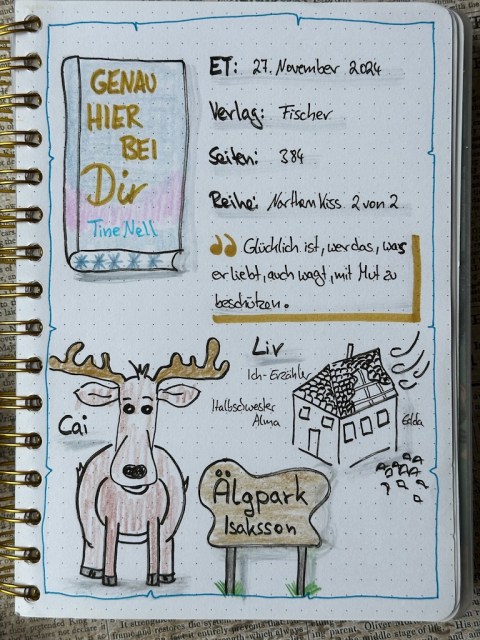 GENAU
HIER
BEI
Dir
Tine Nell
ET: 27. November 2024
Verlag: Fischer
Seiten: 384
Reihe: Northern Kiss 2 von 2
„Glücklich ist, wer das, was
er liebt, auch wagt, mit Mut zu
beschützen.
Liv
Ich-Erzähler
Halbschwester
Alma
Gilda
Cai
Älgpark
Isaksson